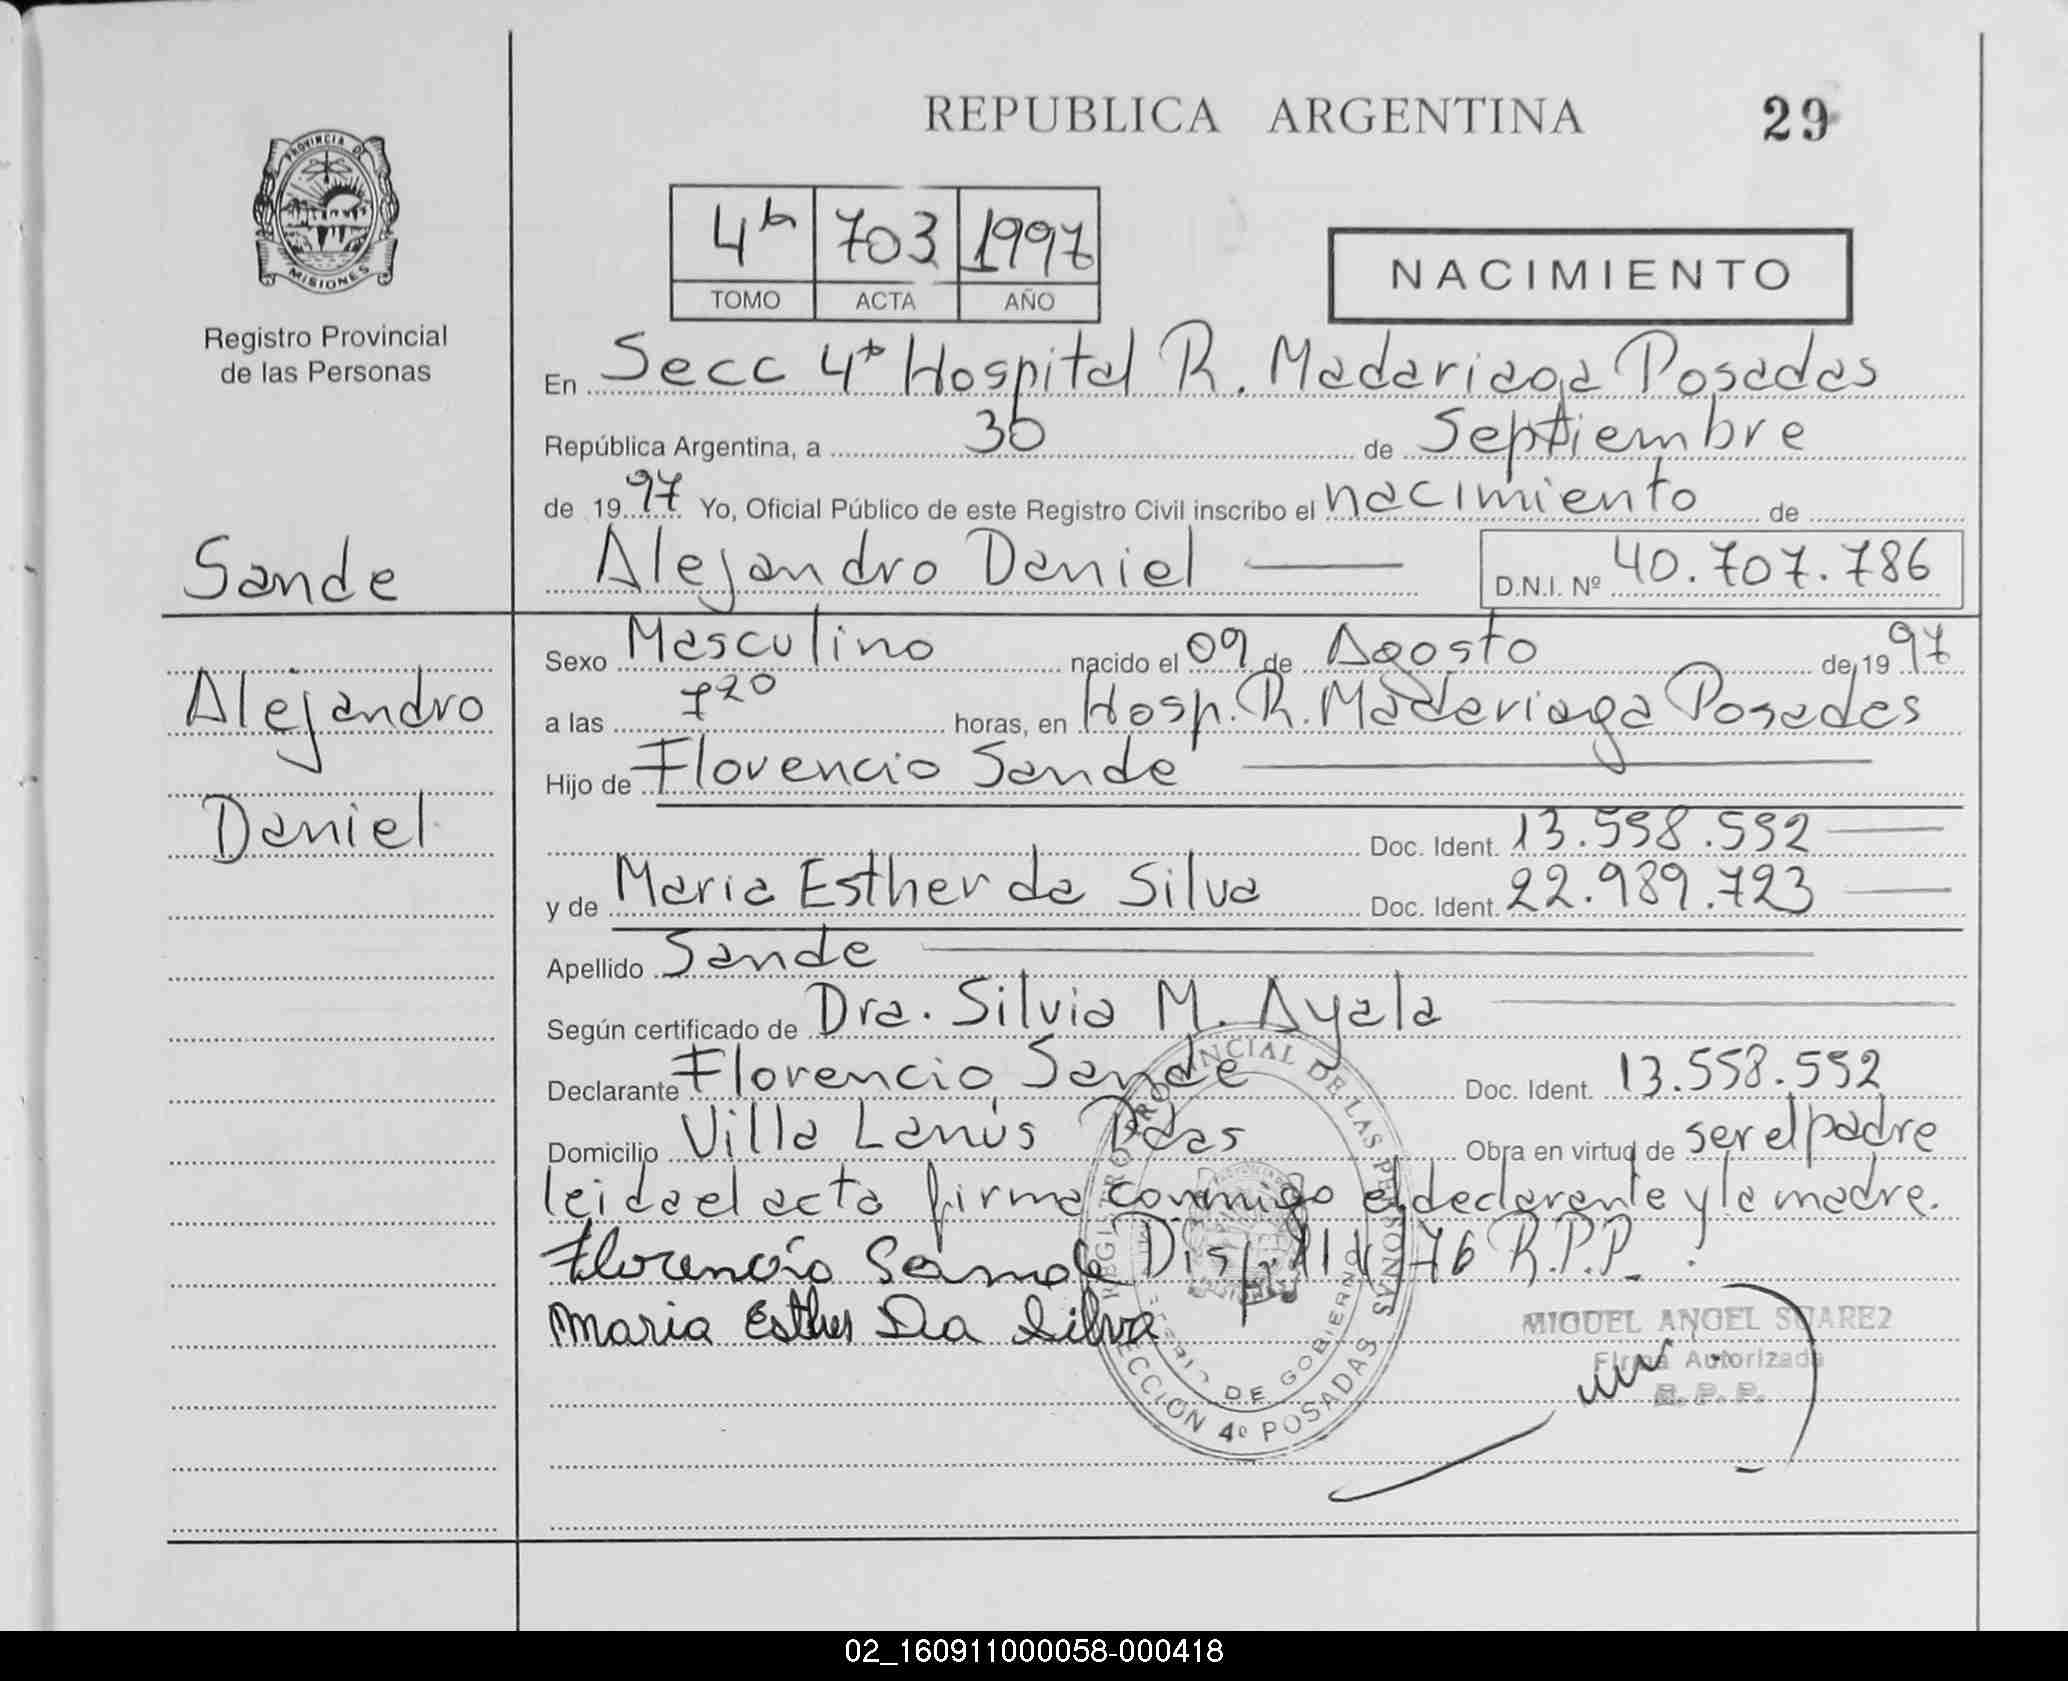 REPUBLICA ARGENTINA 29
PROVINCIA DE
MISIONES
Registro Provincial
de las Personas
4ta 703 1997
TOMO ACTA AÑO
NACIMIENTO
En Secc 4ta Hospital R. Madariaga Posadas
República Argentina, a 30 de Septiembre
de 1997 Yo, Oficial Público de este Registro Civil inscribo el nacimiento de
Alejandro Daniel D.N.I. Nº 40.707.786
Sande
Alejandro
Daniel
Sexo Masculino nacido el 09 de Agosto de 1997
a las 7 20 horas, en Hosp. R. Madariaga Posadas
Hijo de Florencio Sande
Doc. Ident. 13.558.592
y de Maria Esther da Silva Doc. Ident. 22.989.723
Apellido Sande
Según certificado de Dra. Silvia M. Ayala
Declarante Florencio Sande Doc. Ident. 13.558.592
Domicilio Villa Lanús Pdas Obra en virtud de ser el padre
leida el acta firma conmigo el declarante y la madre.
Florencio Sande Disp. 76 R.P.P.
Maria Esther Da Silva
REGISTRO PROVINCIAL DE LAS PERSONAS
DE GOBIERNO
SECCION 4º POSADAS
MIGUEL ANGEL SUAREZ
Firma Autorizada
R. P. P.
02_160911000058-000418